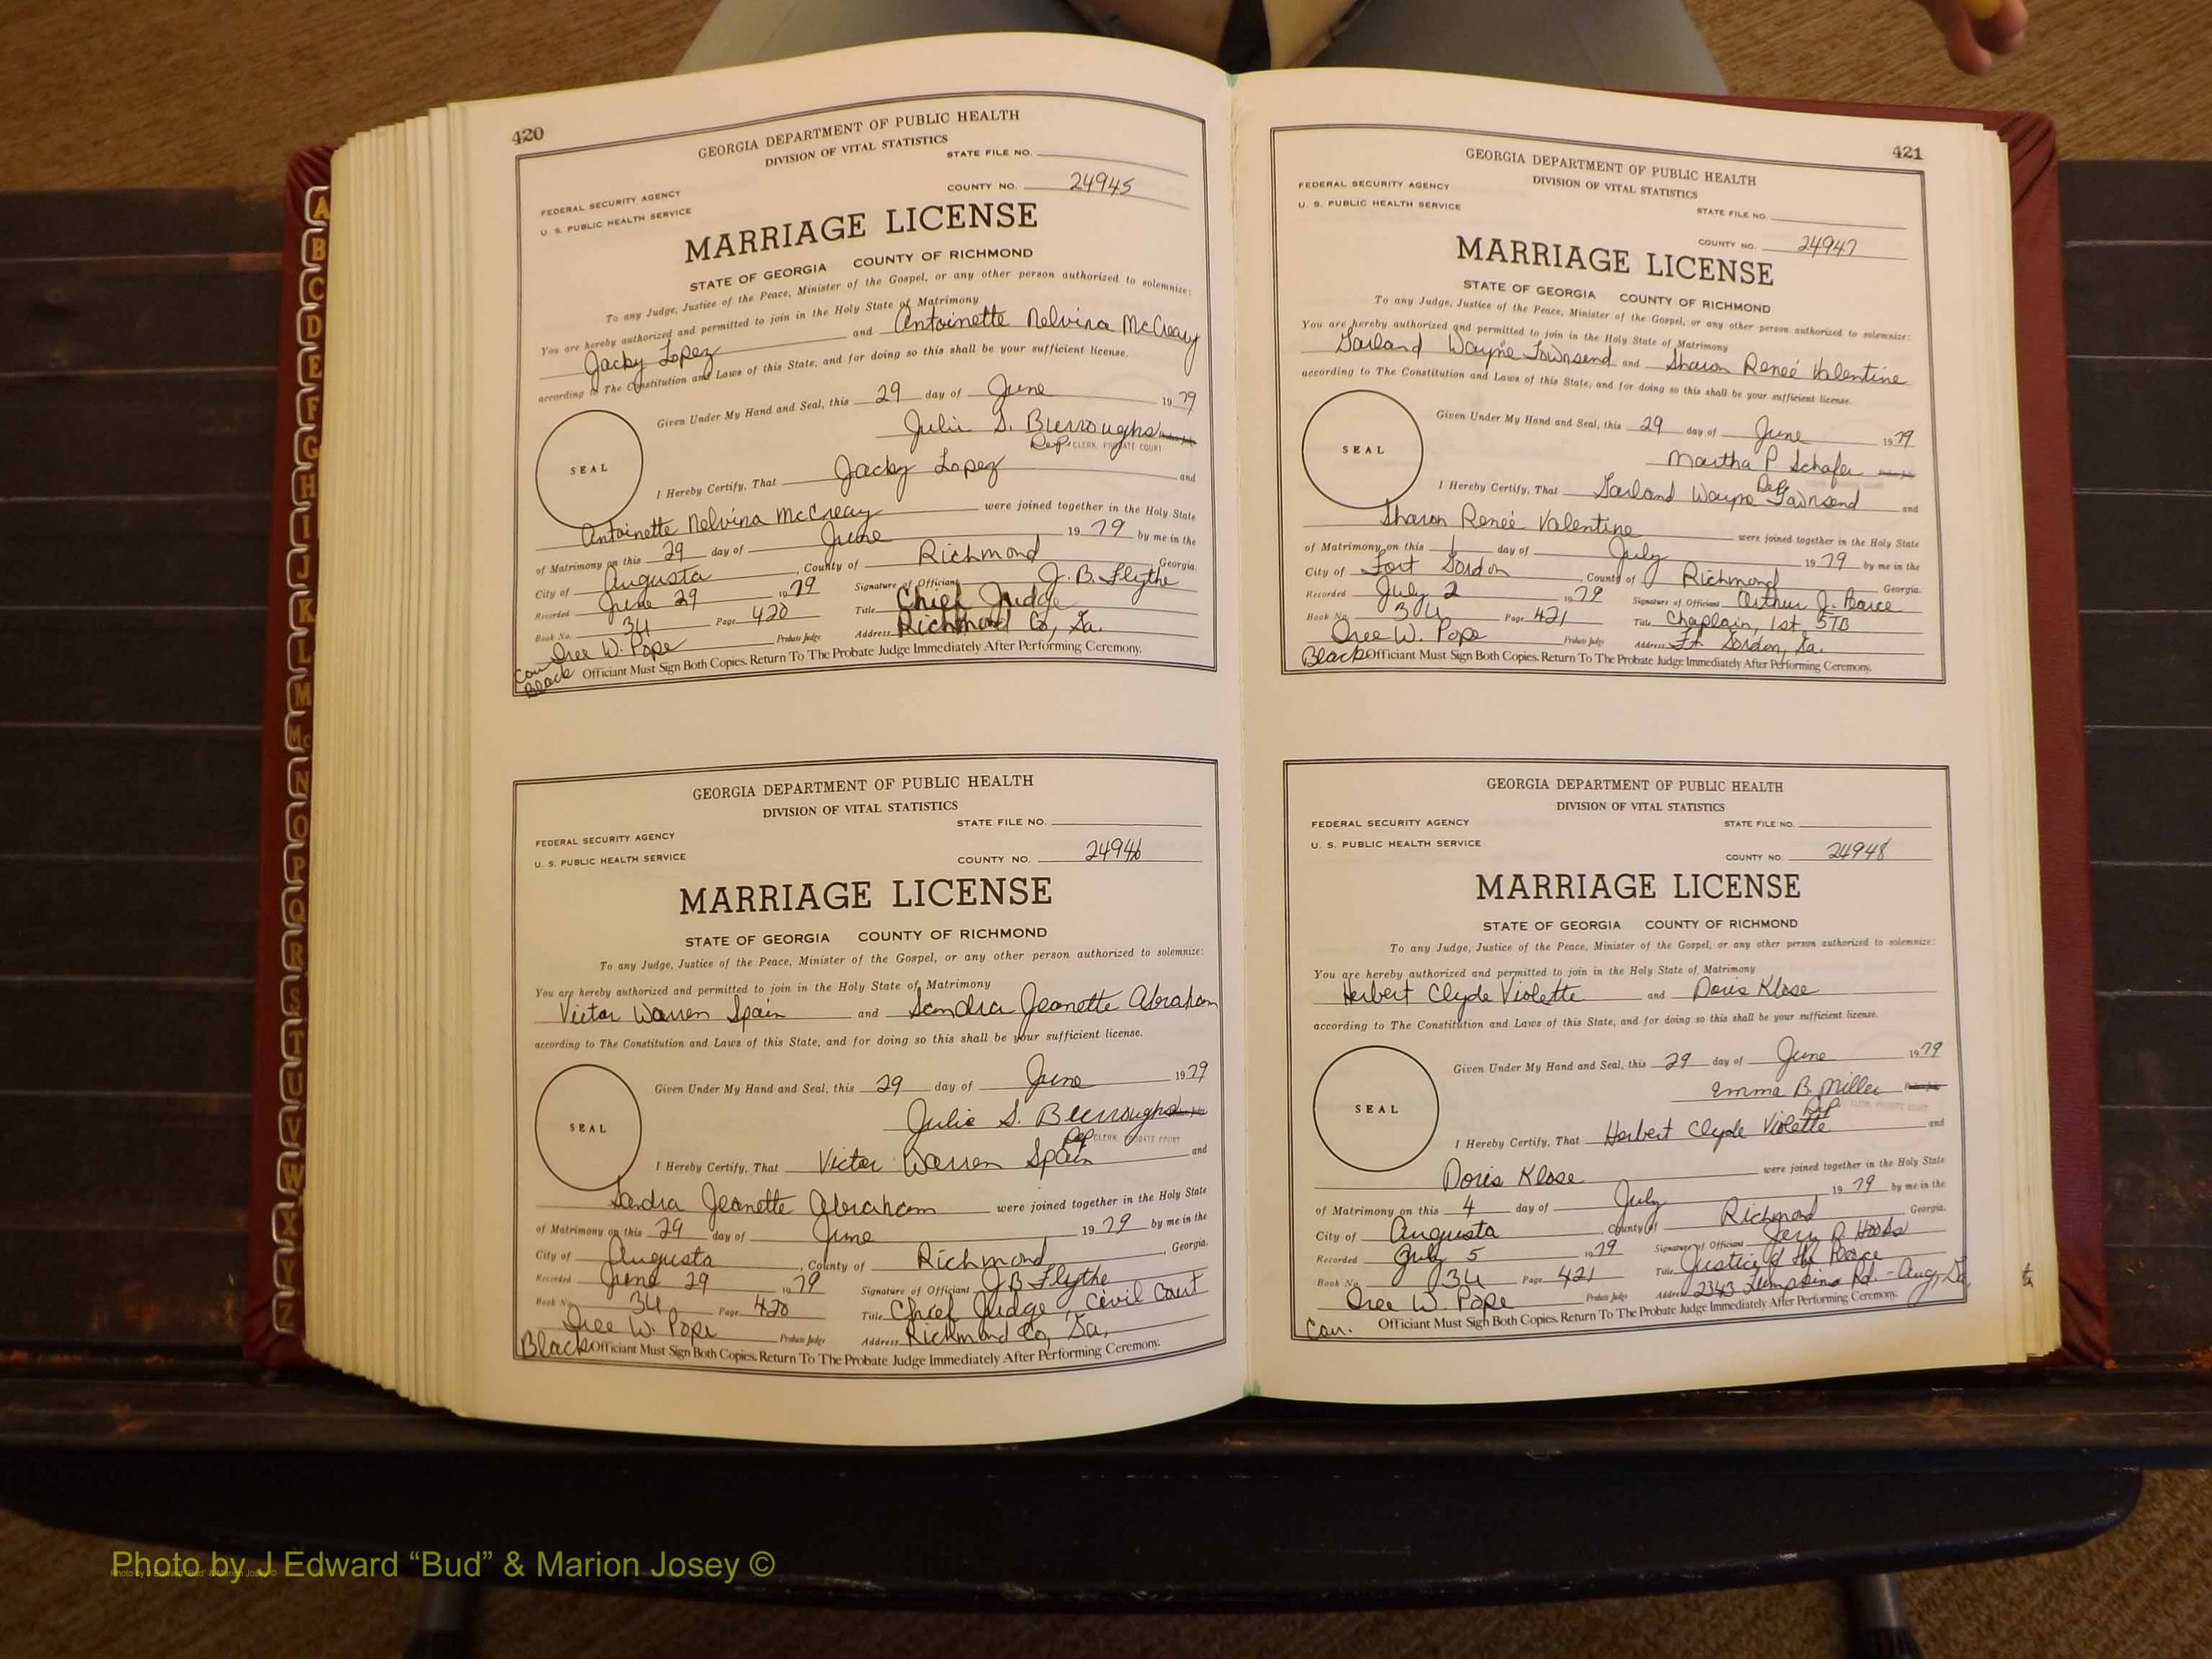 420
GEORGIA DEPARTMENT OF PUBLIC HEALTH
DIVISION OF VITAL STATISTICS
STATE FILE NO.
FEDERAL SECURITY AGENCY
COUNTY NO. 24945
U. S. PUBLIC HEALTH SERVICE
MARRIAGE LICENSE
STATE OF GEORGIA COUNTY OF RICHMOND
To any Judge, Justice of the Peace, Minister of the Gospel, or any other person authorized to solemnize:
You are hereby authorized and permitted to join in the Holy State of Matrimony
Jacky Lopez and Antoinette Nelvina McCreay
according to The Constitution and Laws of this State, and for doing so this shall be your sufficient license.
Given Under My Hand and Seal, this 29 day of June 1979
Julie S. Burroughs
Dep. CLERK, PROBATE COURT
SEAL
I Hereby Certify, That Jacky Lopez and
Antoinette Nelvina McCreay were joined together in the Holy State
of Matrimony on this 29 day of June 1979 by me in the
City of Augusta, County of Richmond, Georgia.
Recorded June 29 1979 Signature of Officiant J. B. Flythe
Book No. 34 Page 420 Title Chief Judge
Oree W. Pope Probate Judge Address Richmond Co, Ga.
Cau
Black Officiant Must Sign Both Copies. Return To The Probate Judge Immediately After Performing Ceremony.
GEORGIA DEPARTMENT OF PUBLIC HEALTH
DIVISION OF VITAL STATISTICS
STATE FILE NO.
FEDERAL SECURITY AGENCY
COUNTY NO. 24946
U. S. PUBLIC HEALTH SERVICE
MARRIAGE LICENSE
STATE OF GEORGIA COUNTY OF RICHMOND
To any Judge, Justice of the Peace, Minister of the Gospel, or any other person authorized to solemnize:
You are hereby authorized and permitted to join in the Holy State of Matrimony
Victor Warren Spain and Sandra Jeanette Abraham
according to The Constitution and Laws of this State, and for doing so this shall be your sufficient license.
Given Under My Hand and Seal, this 29 day of June 1979
Julie S. Burroughs
Dep CLERK, PROBATE COURT
SEAL
I Hereby Certify, That Victor Warren Spain and
Sandra Jeanette Abraham were joined together in the Holy State
of Matrimony on this 29 day of June 1979 by me in the
City of Augusta, County of Richmond, Georgia.
Recorded June 29 1979 Signature of Officiant J. B. Flythe
Book No. 34 Page 420 Title Chief Judge, Civil Court
Oree W. Pope Probate Judge Address Richmond Co, Ga.
Black Officiant Must Sign Both Copies. Return To The Probate Judge Immediately After Performing Ceremony.
421
GEORGIA DEPARTMENT OF PUBLIC HEALTH
DIVISION OF VITAL STATISTICS
FEDERAL SECURITY AGENCY
U. S. PUBLIC HEALTH SERVICE
STATE FILE NO.
COUNTY NO. 24947
MARRIAGE LICENSE
STATE OF GEORGIA COUNTY OF RICHMOND
To any Judge, Justice of the Peace, Minister of the Gospel, or any other person authorized to solemnize:
You are hereby authorized and permitted to join in the Holy State of Matrimony
Garland Wayne Townsend and Sharon Reneé Valentine
according to The Constitution and Laws of this State, and for doing so this shall be your sufficient license.
Given Under My Hand and Seal, this 29 day of June 1979
Martha P Schafer
Dep
SEAL
I Hereby Certify, That Garland Wayne Townsend and
Sharon Reneé Valentine were joined together in the Holy State
of Matrimony on this 1 day of July 1979 by me in the
City of Fort Gordon, County of Richmond, Georgia.
Recorded July 2 1979 Signature of Officiant Arthur J. Pearce
Book No. 34 Page 421 Title Chaplain, 1st STB
Oree W. Pope Probate Judge Address Ft. Gordon, Ga.
Black Officiant Must Sign Both Copies. Return To The Probate Judge Immediately After Performing Ceremony.
GEORGIA DEPARTMENT OF PUBLIC HEALTH
DIVISION OF VITAL STATISTICS
FEDERAL SECURITY AGENCY
STATE FILE NO.
U. S. PUBLIC HEALTH SERVICE
COUNTY NO. 24948
MARRIAGE LICENSE
STATE OF GEORGIA COUNTY OF RICHMOND
To any Judge, Justice of the Peace, Minister of the Gospel, or any other person authorized to solemnize:
You are hereby authorized and permitted to join in the Holy State of Matrimony
Herbert Clyde Violette and Doris Klose
according to The Constitution and Laws of this State, and for doing so this shall be your sufficient license.
Given Under My Hand and Seal, this 29 day of June 1979
Emma B. Miller
Dep CLERK, PROBATE COURT
SEAL
I Hereby Certify, That Herbert Clyde Violette and
Doris Klose were joined together in the Holy State
of Matrimony on this 4 day of July 1979 by me in the
City of Augusta, County of Richmond, Georgia.
Recorded July 5 1979 Signature of Officiant Jery R
Book No. 34 Page 421 Title Justice of the Peace
Oree W. Pope Probate Judge Address 2343 Lumpkin Rd - Aug, Ga
Cau. Officiant Must Sign Both Copies. Return To The Probate Judge Immediately After Performing Ceremony.
A
B
C
D
E
F
G
H
I
J
K
L
M
Mc
N
O
P
Q
R
S
T
U
V
W
X
Y
Z
Photo by J Edward “Bud” & Marion Josey ©